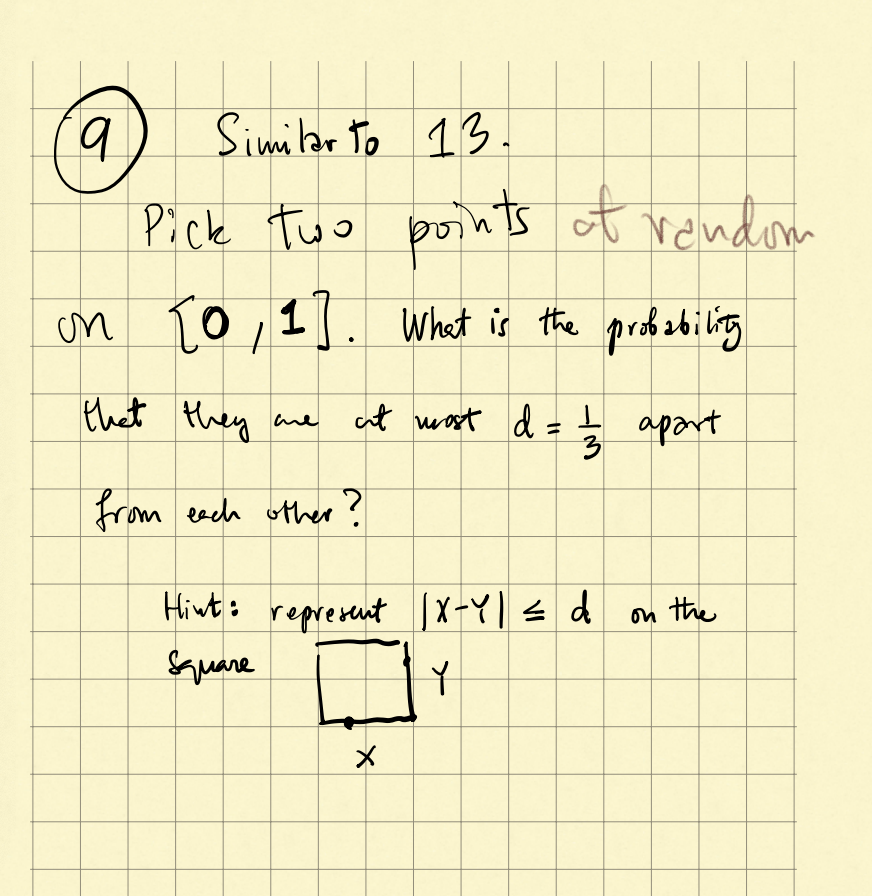 9 Similar to 13.
Pick two points at random
on [0, 1]. What is the probability
that they are at most d = 1/3 apart
from each other?
Hint: represent |X-Y| ≤ d on the
square Y
X